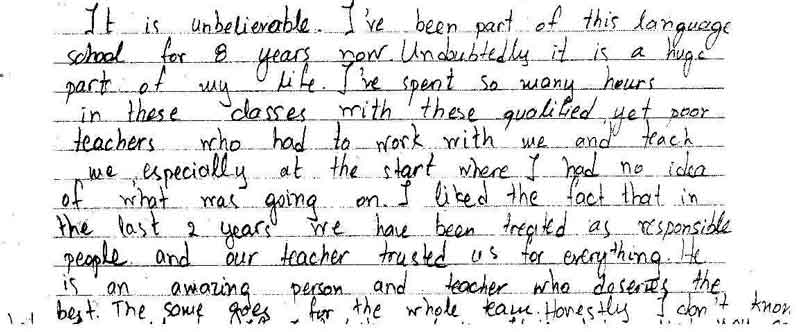 It is unbelievable. I've been part of this language
school for 8 years now. Undoubtedly it is a huge
part of my life. I've spent so many hours
in these classes with these qualified yet poor
teachers who had to work with me and teach
me, especially at the start where I had no idea
of what was going on. I liked the fact that in
the last 2 years we have been treated as responsible
people and our teacher trusted us for everything. He
is an amazing person and teacher who deserves the
best. The same goes for the whole team. Honestly I don't know